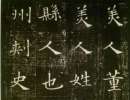 美人董
美人姓
縣人也
州刺史